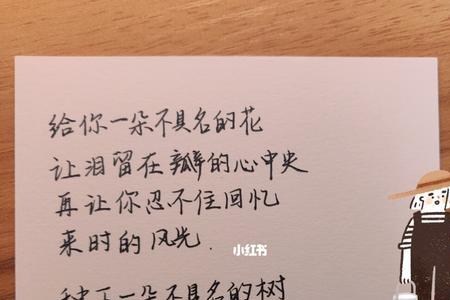 给你一朵不具名的花
让泪留在瓣的心中央
再让你忍不住回忆
来时的风光.
小红书
一朵不具名的树